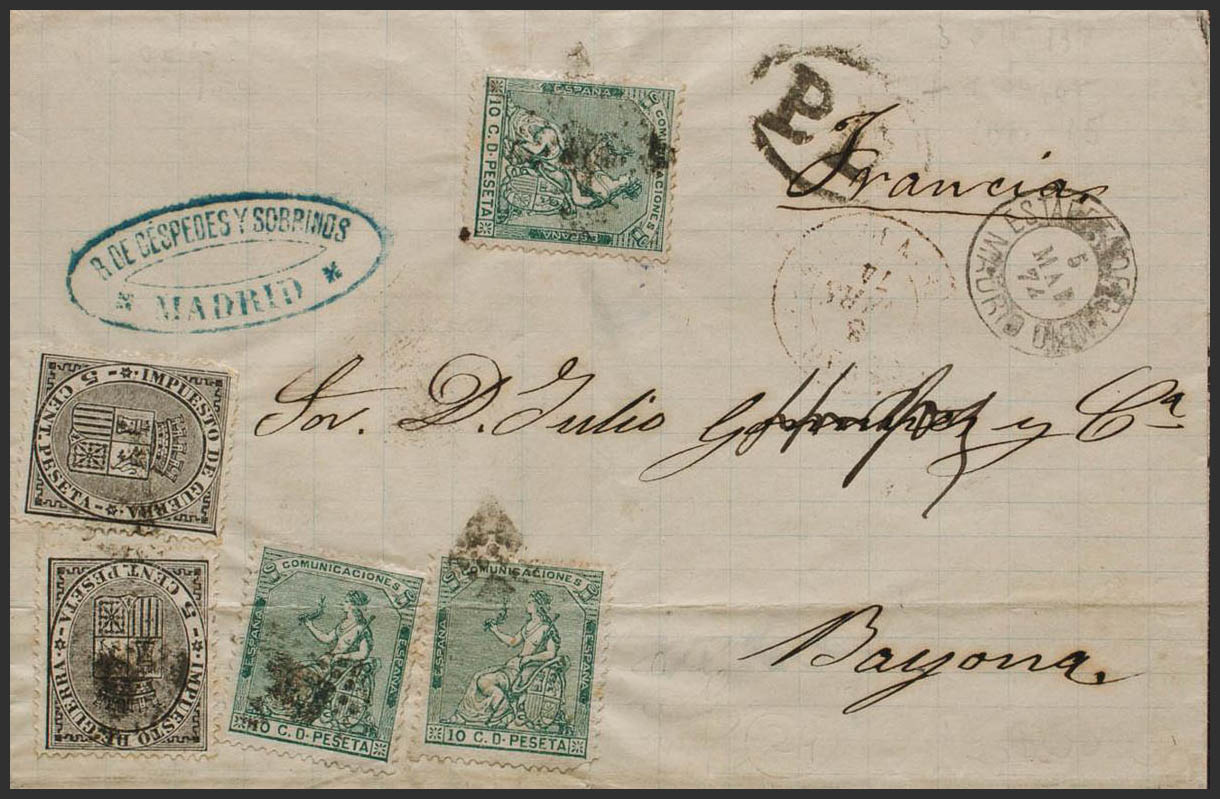 P
Francia
B. DE CÉSPEDES Y SOBRINOS
MADRID
5
MAR
74
MADRID
Sor. D. Julio
y Cª
Bayona.
ESPAÑA
COMUNICACIONES
10 C. D. PESETA
ESPAÑA
IMPUESTO DE GUERRA
5 CENT. PESETA
5 CENT. PESETA
IMPUESTO DE GUERRA
COMUNICACIONES
ESPAÑA
ESPAÑA
10 C. D. PESETA
COMUNICACIONES
ESPAÑA
ESPAÑA
10 C. D. PESETA